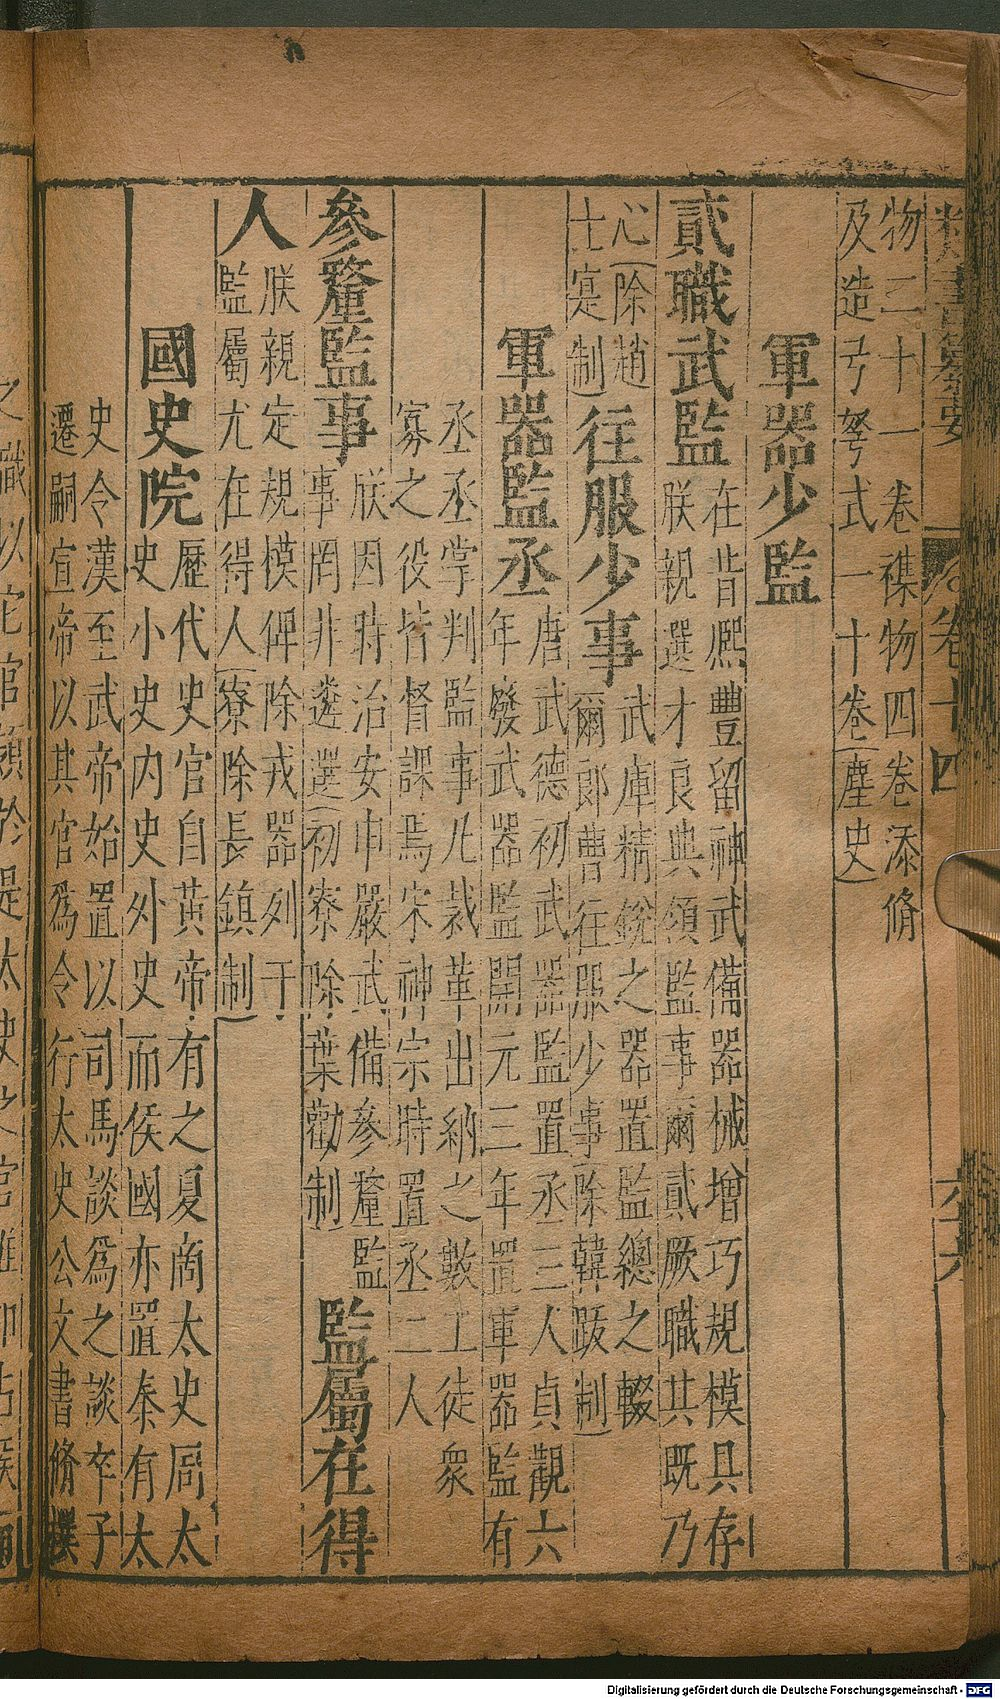 物三十一卷襍物四卷添脩
及造弓弩式一十卷(塵史)
軍器少監
貳職武監
在昔熈豐留神武備器械增巧規模具存
朕親選才良典領監事爾貳厥職共旣乃
心(除趙
士寔制)
往服少事
武庫精銳之器置監總之輟
爾郎曹往服少事(除韓跋制)
軍器監丞
唐武德初武器監置丞三人貞觀六
年發武器監開元三年置軍器監有
丞丞掌判監事凡裁革出納之數工徒衆
寡之役皆督課焉宋神宗時置丞二人
參釐監事
朕因時治安申嚴武備參釐監
事罔非遴選(初寮除葉勸制)
監屬在得
人
朕親定規模俾除戎器列于
監屬尤在得人(寮除長鎮制)
國史院
歷代史官自黃帝有之夏商太史周太
史小史內史外史而侯國亦置秦有太
史令漢至武帝始置以司馬談爲之談卒子
遷嗣宣帝以其官爲令行太史公文書脩撰
卷十四
六十六
Digitalisierung gefördert durch die Deutsche Forschungsgemeinschaft - DFG